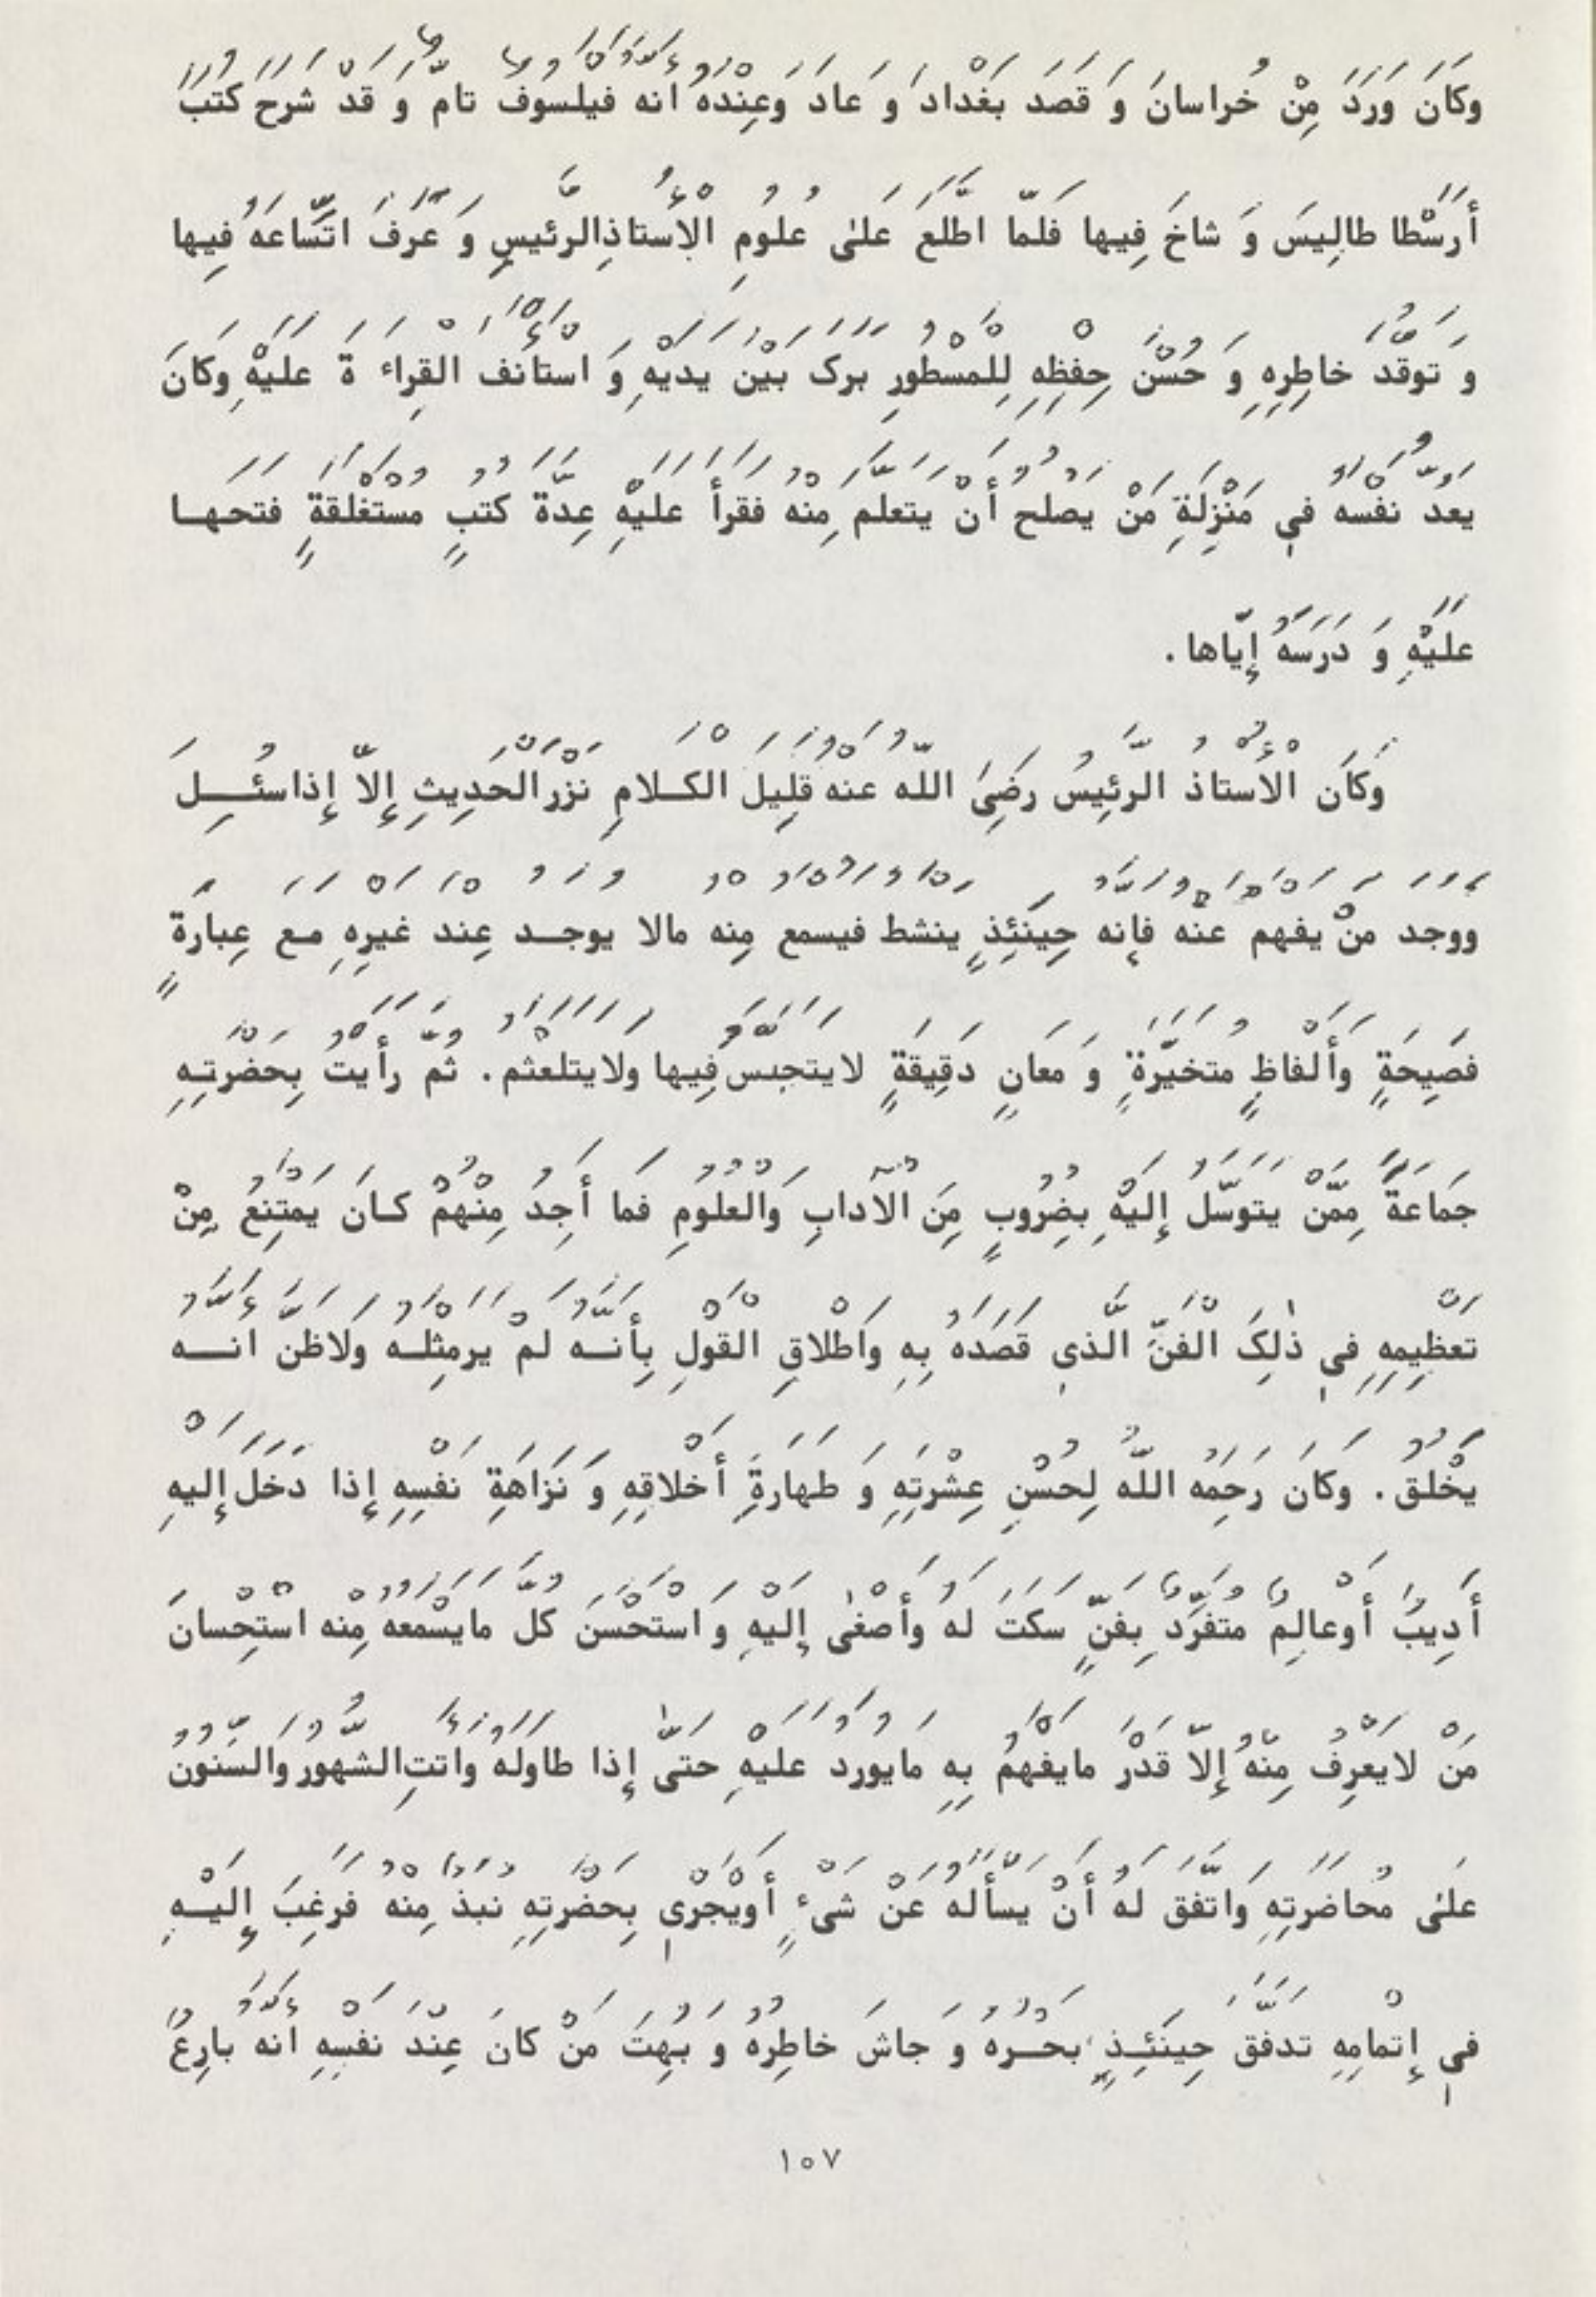 وَكَانَ وَرَدَ مِنْ خُراسانَ وَ قَصَدَ بَغْدادَ وَ عادَ وَعِنْدَهُ أَنَّهُ فَيْلَسُوفٌ تَامٌّ وَ قَدْ شَرَحَ كُتُبَ
أَرَسْطا طالِيسَ وَ شاخَ فِيها فَلَمّا اطَّلَعَ عَلىٰ عُلُومِ الْأُسْتاذِ الرَّئيسِ وَ عَرَفَ اتِّساعَهُ فِيها
وَ تَوَقُّدَ خاطِرِهِ وَ حُسْنَ حِفْظِهِ لِلْمَسْطُورِ بَرَكَ بَيْنَ يَدَيْهِ وَ اسْتَأْنَفَ الْقِراءَ ةَ عَلَيْهِ وَكانَ
يَعُدُّ نَفْسَهُ فى مَنْزِلَةِ مَنْ يَصْلُحُ أَنْ يَتَعَلَّمَ مِنْهُ فَقَرَأَ عَلَيْهِ عِدَّةَ كُتُبٍ مُسْتَغْلَقَةٍ فَتَحَهـا
عَلَيْهِ وَ دَرَسَهُ إِيّاها .
وَكَان الْأُسْتاذُ الرَّئِيسُ رَضِىَ اللّهُ عَنْهُ قَلِيلَ الْكَـلامِ نَزْرَ الْحَدِيثِ إِلاّ إِذا سُئِـلَ
وَوَجَدَ مَنْ يَفْهَمُ عَنْهُ فَإِنَّهُ حِينَئِذٍ يَنْشَطُ فَيُسْمَعُ مِنْهُ مالا يُوجَـدُ عِنْدَ غَيْرِهِ مَـعَ عِبارَةٍ
فَصِيحَةٍ وَأَلْفاظٍ مُتَخَيَّرَةٍ وَ مَعانٍ دَقِيقَةٍ لا يَتَحَبَّسُ فِيها وَلايَتَلَعْثَمُ . ثُمَّ رَأَيْتُ بِحَضْرَتِـهِ
جَمَاعَةً مِمَّنْ يَتَوَسَّلُ إِلَيْهِ بِضُرُوبٍ مِنَ الْآدابِ وَالْعُلُومِ فَما أَجِدُ مِنْهُمْ كـانَ يَمْتَنِعُ مِنْ
تَعْظِيمِهِ فى ذٰلِكَ الْفَنِّ الَّذى قَصَدَهُ بِهِ وَإِطْلاقِ الْقَوْلِ بِأَنَّـهُ لَمْ يَرَمِثْلَـهُ وَلاظَنَّ أَنَّـهُ
يُخْلَقُ . وَكانَ رَحِمَهُ اللّهُ لِحُسْنِ عِشْرَتِهِ وَ طَهارَةِ أَخْلاقِهِ وَ نَزَاهَةِ نَفْسِهِ إِذا دَخَلَ إِلَيْهِ
أَدِيبٌ أَوعالِمٌ مُتَفَرِّدٌ بِفَنٍّ سَكَتَ لَهُ وَأَصْغىٰ إِلَيْهِ وَ اسْتَحْسَنَ كُلَّ مايَسْمَعُهُ مِنْهُ اسْتِحْسانَ
مَنْ لايَعْرِفُ مِنْهُ إِلاّ قَدْرَ مايَفْهَمُ بِهِ مايُورَدُ عَلَيْهِ حَتّىٰ إِذا طاوَلَهُ وَأَتَتِ الشُّهُورُ وَالسِّنُونُ
عَلىٰ مُحاضَرَتِهِ وَاتَّفَقَ لَهُ أَنْ يَسْأَلَهُ عَنْ شَىْءٍ أَوْيَجْرِىَ بِحَضْرَتِهِ نُبَذٌ مِنْهُ فَرَغِبَ إِلَيْـهِ
فى إِتْمامِهِ تَدَفَّقَ حِينَئِـذٍ بَحْـرُهُ وَ جاشَ خاطِرُهُ وَ بُهِتَ مَنْ كانَ عِنْدَ نَفْسِهِ أَنَّهُ بارِعٌ
١٠٧